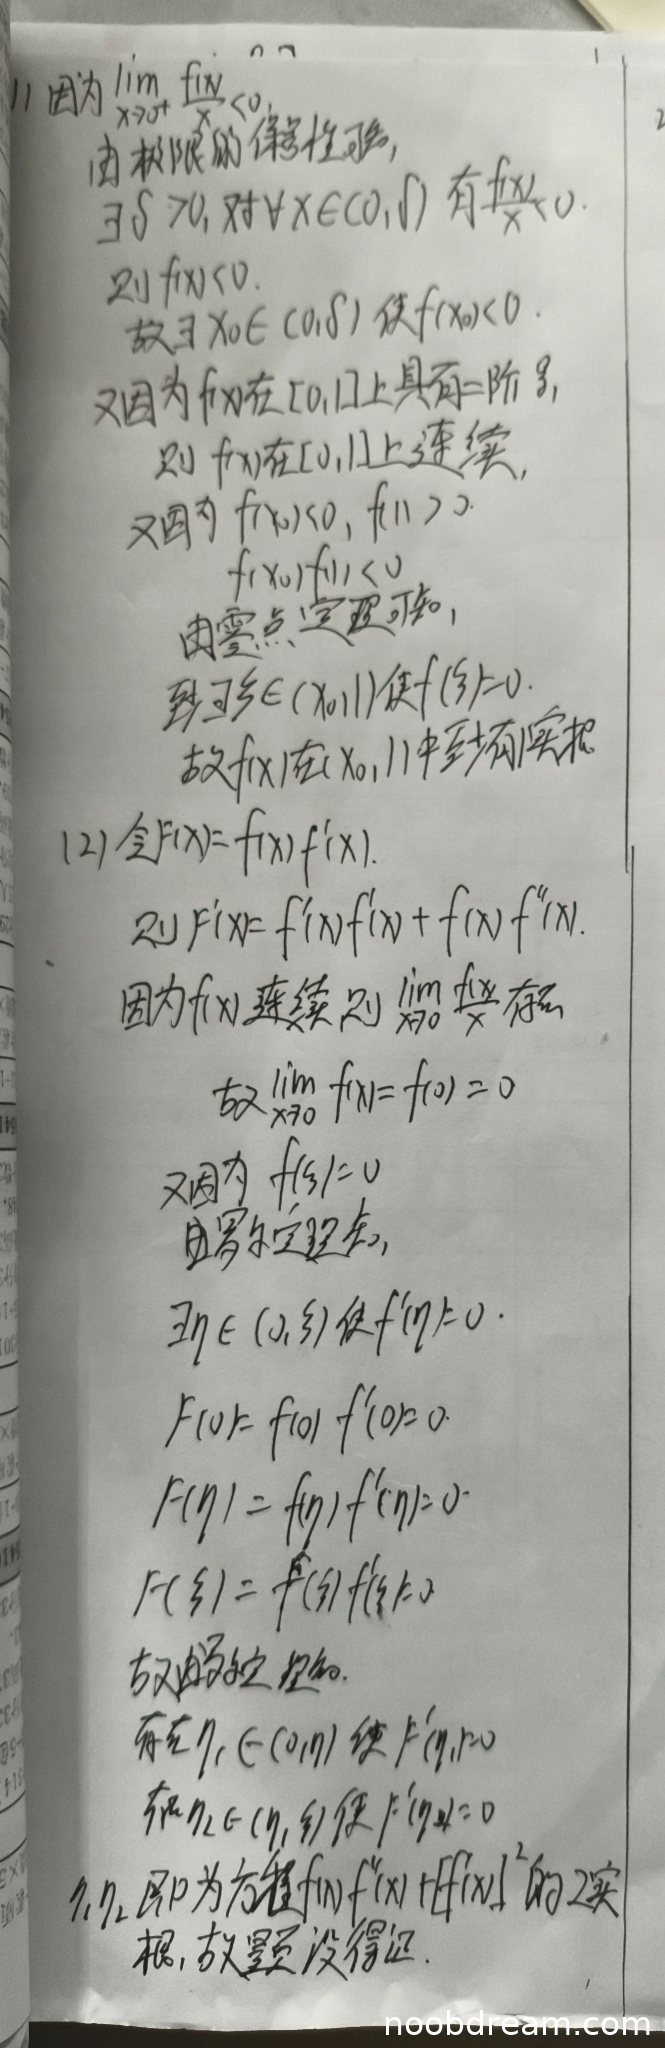 11 因为 lim x→0⁺ f(x)/x <0,
由极限的保号性知,
∃δ>0, 对∀x∈(0,δ) 有 f(x)/x <0.
则 f(x)<0.
故∃x₀∈(0,δ) 使f(x₀)<0.
又因为f(x)在[0,1]上具有二阶导,
则 f(x)在[0,1]上连续,
又因为 f(x₀)<0, f(1)>0.
f(x₀)f(1)<0
由零点定理可知,
到∃ξ∈(x₀,1)使f(ξ)=0.
故f(x)在(x₀,1)中至少有1实根
(2) 令F(x)= f(x)f'(x).
则 F'(x)= f'(x)f'(x)+f(x)f''(x).
因为f(x)连续 则 lim x→0 f(x)/x 存在
故 lim x→0 f(x)=f(0)=0
又因为 f(ξ)=0
由罗尔定理知,
∃η∈(0,ξ)使f'(η)=0.
F(0)= f(0) f'(0)=0.
F(η) = f(η)f'(η)=0.
F(ξ) = f(ξ)f'(ξ)=0
故由罗尔定理知.
存在η₁∈(0,η) 使F'(η₁)=0
存在η₂∈(η,ξ)使F'(η₂)=0
η₁η₂ 即为方程f(x)f''(x)+[f'(x)]²的2实
根,故题设得证.
noobdream.com